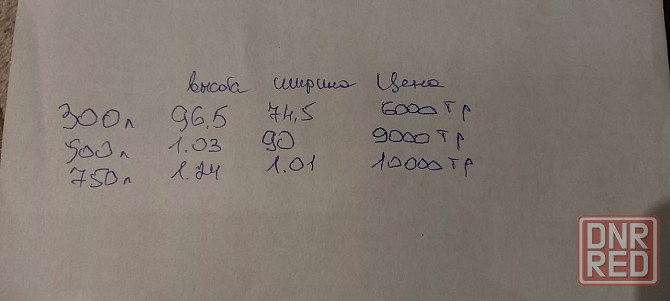 высота ширина Цена
300л 96,5 74,5 6000 тр
500л 1.03 90 9000 тр
750л 1.24 1.01 10000 тр
DNR
RED